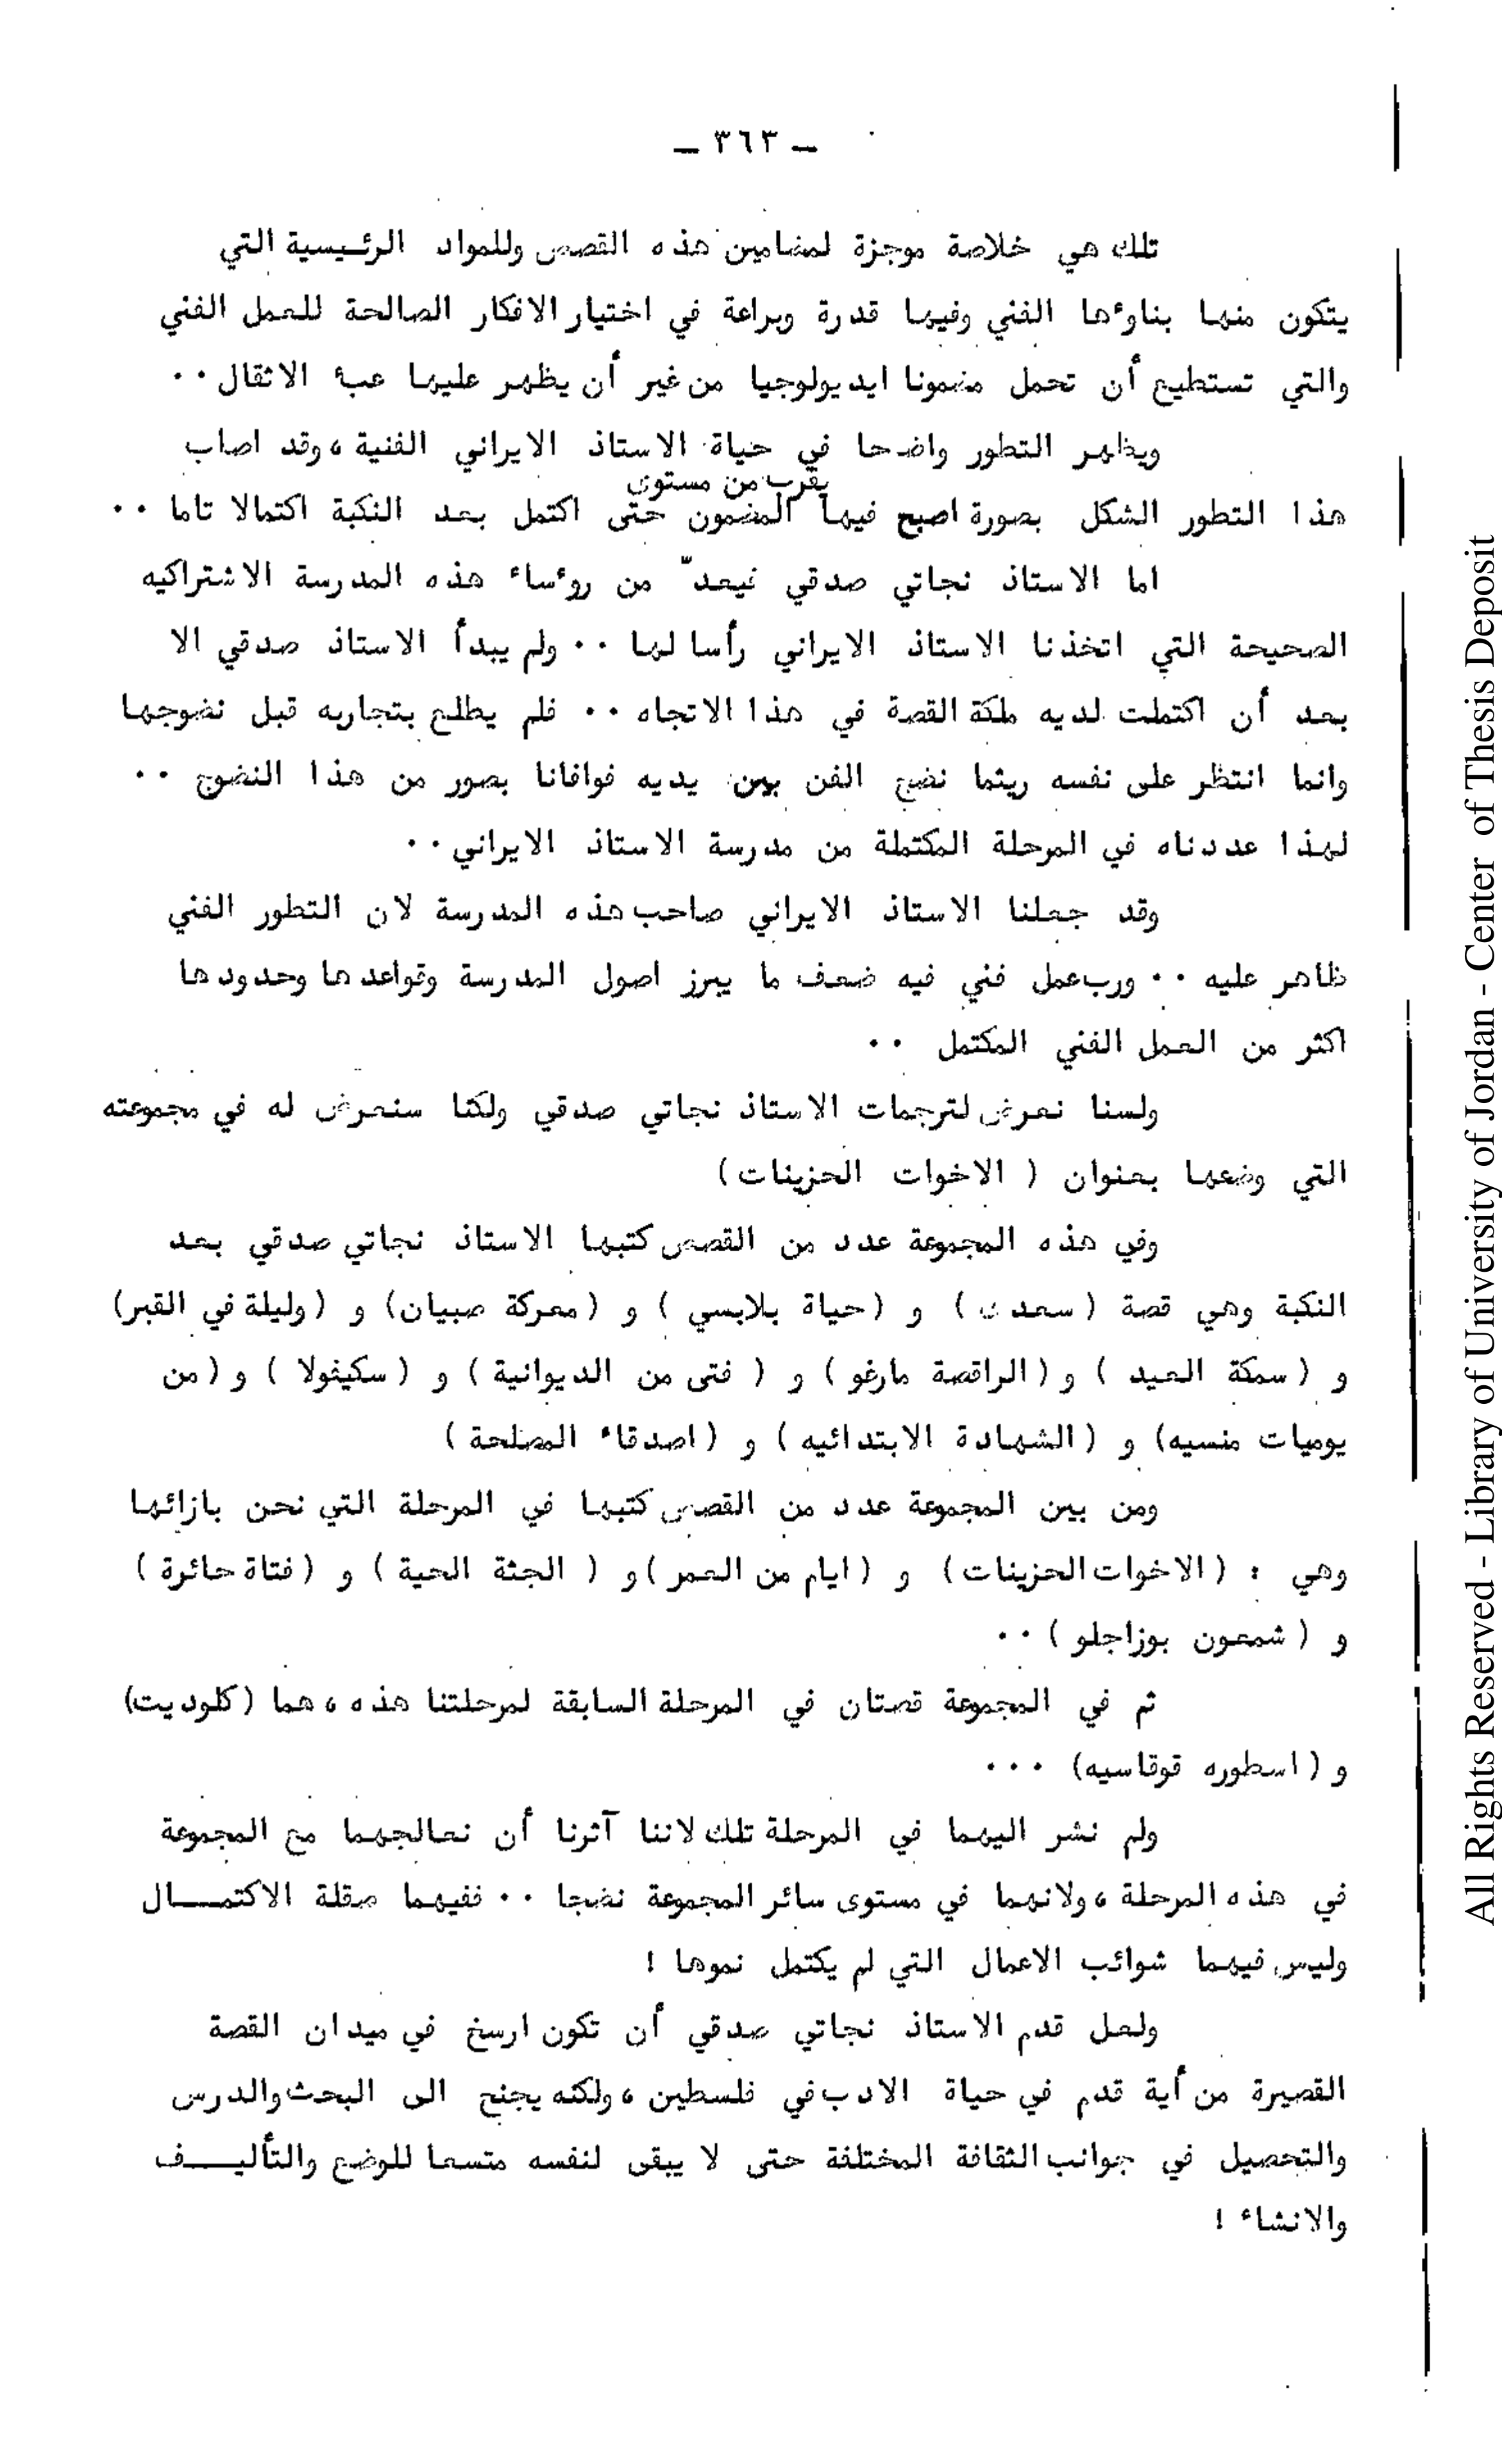 — ٣٦٣ —
تلك هي خلاصة موجزة لمضامين هذه القصص وللمواد الرئيسية التي
يتكون منها بناوءها الفني وفيها قدرة وبراعة في اختيار الافكار الصالحة للعمل الفني
والتي تستطيع أن تحمل مضمونا ايديولوجيا من غير أن يظهر عليها عبء الاثقال ٠٠
ويظهر التطور واضحا في حياة الاستاذ الايراني الفنية ، وقد اصاب
يقرب من مستوى
هذا التطور الشكل بصورة اصبح فيها المضمون حتى اكتمل بعد النكبة اكتمالا تاما ٠٠
اما الاستاذ نجاتي صدقي فيعدّ من روءساء هذه المدرسة الاشتراكيه
الصحيحة التي اتخذنا الاستاذ الايراني رأسا لها ٠٠ ولم يبدأ الاستاذ صدقي الا
بعد أن اكتملت لديه ملكة القصة في هذا الاتجاه ٠٠ فلم يطلع بتجاربه قبل نضوجها
وانما انتظر على نفسه ريثما نضج الفن بين يديه فوافانا بصور من هذا النضوج ٠٠
لهذا عددناه في المرحلة المكتملة من مدرسة الاستاذ الايراني ٠٠
وقد جعلنا الاستاذ الايراني صاحب هذه المدرسة لان التطور الفني
ظاهر عليه ٠٠ ورب عمل فني فيه ضعف ما يبرز اصول المدرسة وقواعدها وحدودها
اكثر من العمل الفني المكتمل ٠٠
ولسنا نعرض لترجمات الاستاذ نجاتي صدقي ولكنا سنعرض له في مجموعته
التي وضعها بعنوان ( الاخوات الحزينات )
وفي هذه المجموعة عدد من القصص كتبها الاستاذ نجاتي صدقي بعد
النكبة وهي قصة ( سعدى ) و ( حياة بلابسي ) و ( معركة صبيان ) و ( وليلة في القبر )
و ( سمكة العيد ) و ( الراقصة مارغو ) و ( فتى من الديوانية ) و ( سكيفولا ) و ( من
يوميات منسيه ) و ( الشهادة الابتدائيه ) و ( اصدقاء المصلحة )
ومن بين المجموعة عدد من القصص كتبها في المرحلة التي نحن بازائها
وهي : ( الاخوات الحزينات ) و ( ايام من العمر ) و ( الجثة الحية ) و ( فتاة حائرة )
و ( شمعون بوزاجلو ) ٠٠
ثم في المجموعة قصتان في المرحلة السابقة لمرحلتنا هذه ، هما ( كلوديت )
و ( اسطوره قوقاسيه ) ٠٠٠
ولم نشر اليهما في المرحلة تلك لاننا آثرنا أن نعالجهما مع المجموعة
في هذه المرحلة ، ولانهما في مستوى سائر المجموعة نضجا ٠٠ ففيهما صقلة الاكتمـــال
وليس فيهما شوائب الاعمال التي لم يكتمل نموها !
ولعل قدم الاستاذ نجاتي صدقي أن تكون ارسخ في ميدان القصة
القصيرة من أية قدم في حياة الادب في فلسطين ، ولكنه يجنح الى البحث والدرس
والتحصيل في جوانب الثقافة المختلفة حتى لا يبقى لنفسه متسعا للوضع والتأليـــف
والانشاء !
All Rights Reserved - Library of University of Jordan - Center of Thesis Deposit